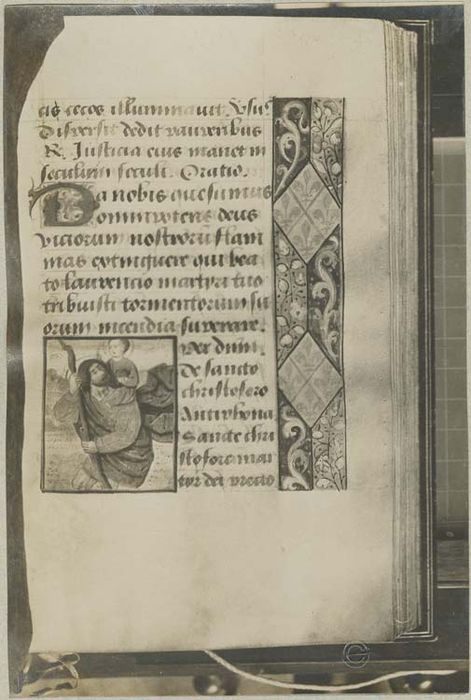 cis cecos illuminauit. Vsus
Dispersit dedit pauperibus
R. Justicia eius manet in
seculum seculi. Oratio.
Da nobis quesumus
omnipotens deus
viciorum nostrorum flam
mas extinguere qui bea
to laurencio martyri tuo
tribuisti tormentorum su
orum incendia superare.
Per dum.
De sancto
christofero
Antiphona
Sancte chri
stofore mar
tyr dei precio